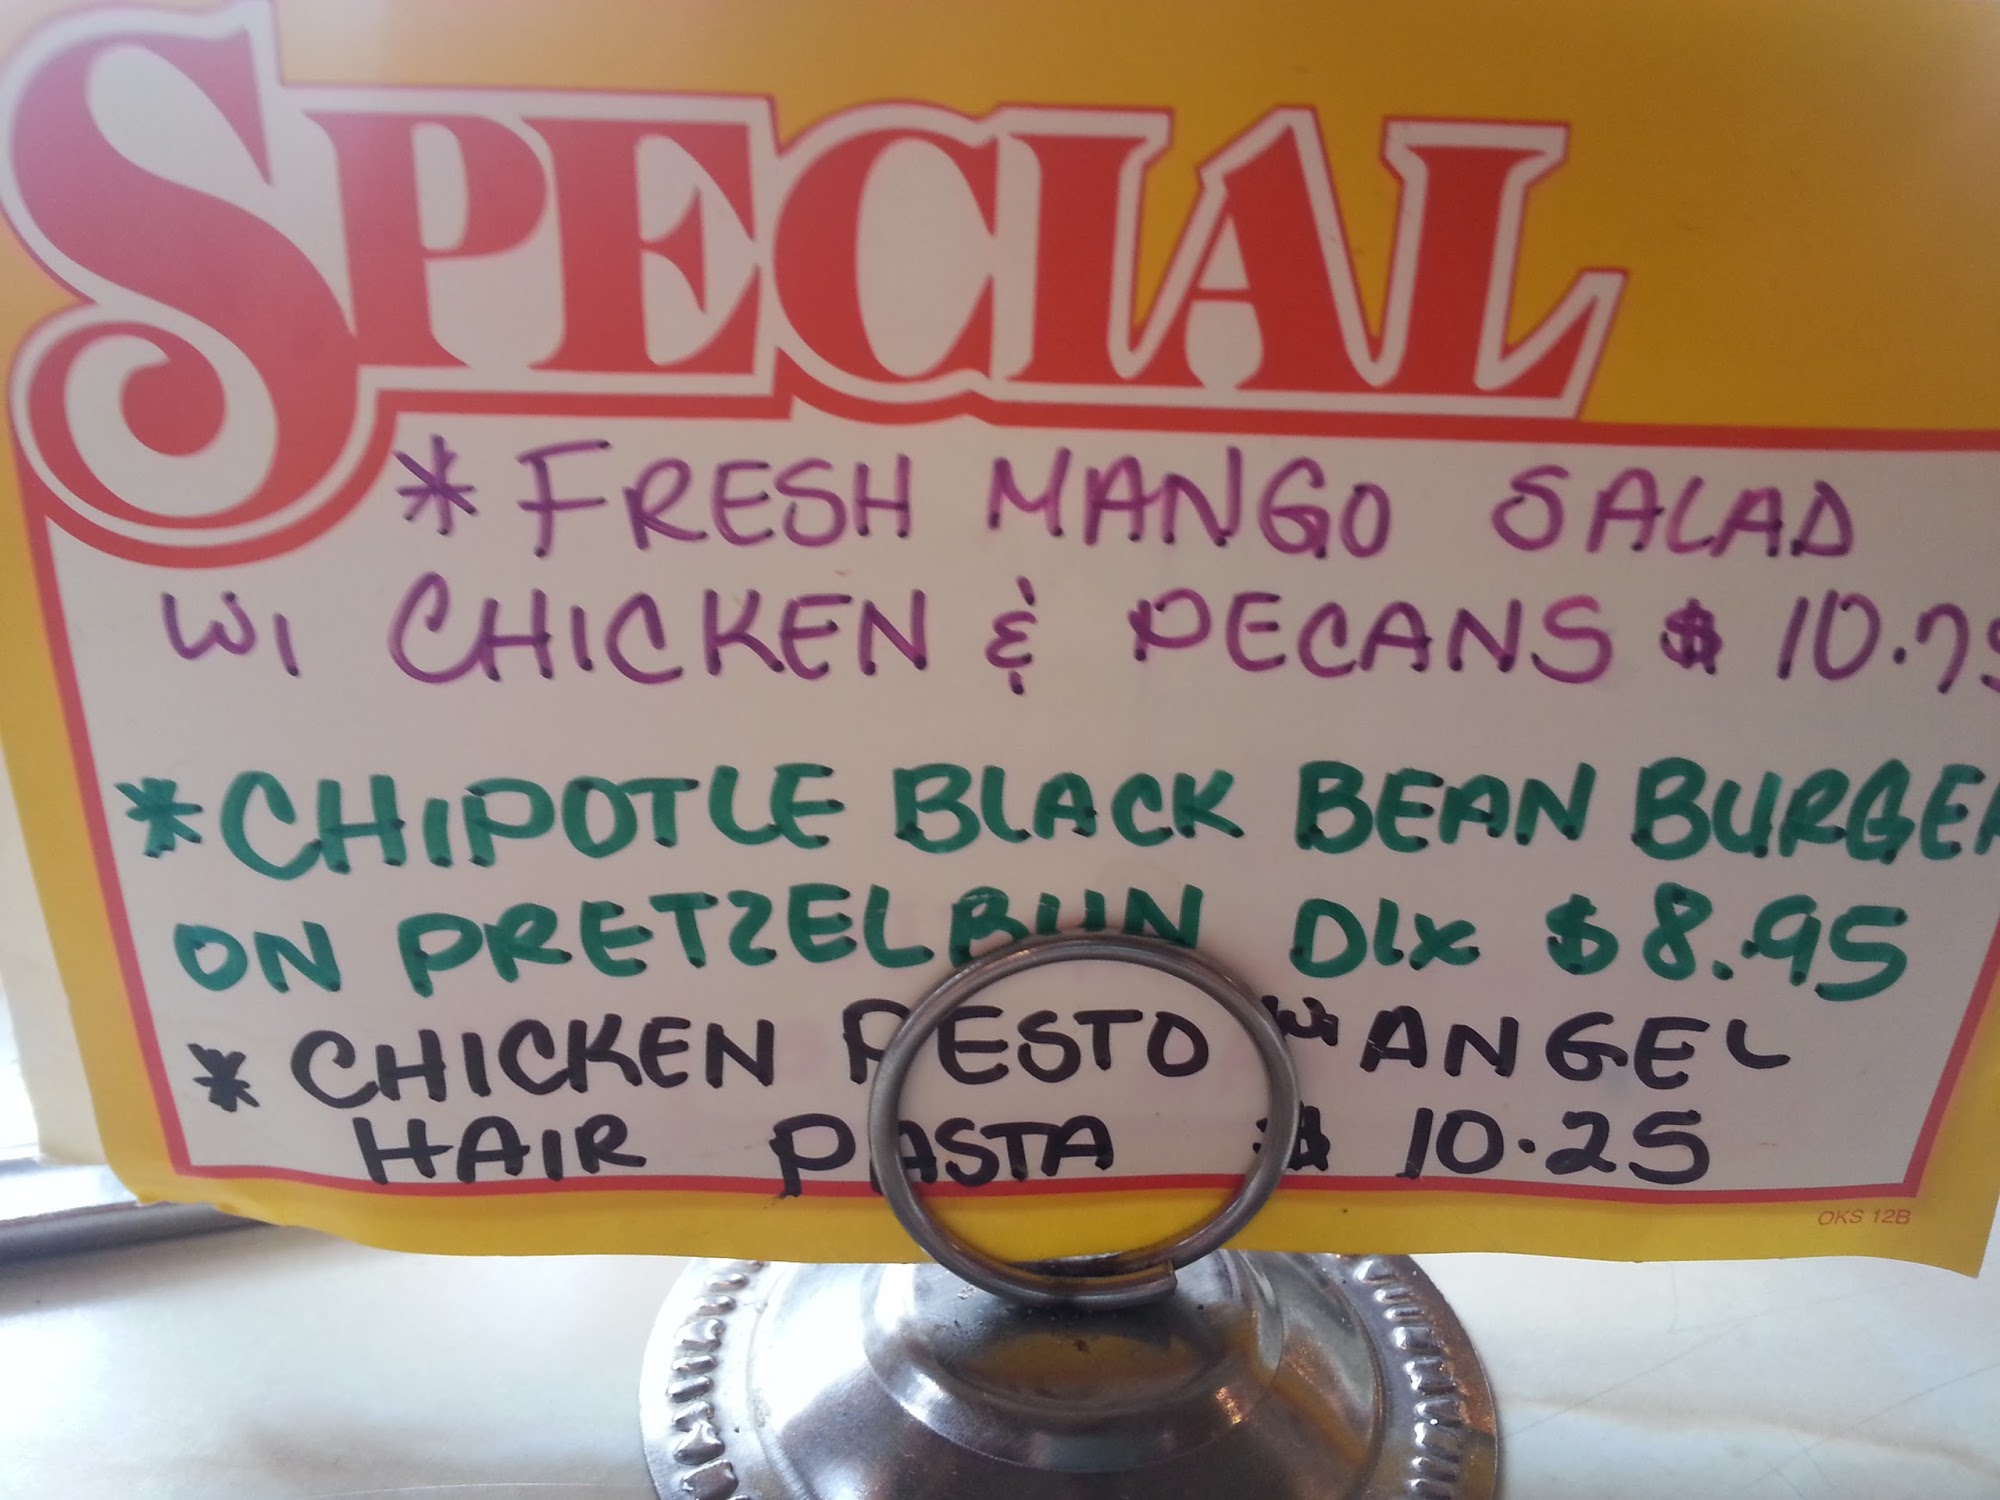 SPECIAL
* FRESH MANGO SALAD
W/ CHICKEN & PECANS $ 10.75
* CHIPOTLE BLACK BEAN BURGER
ON PRETZEL BUN DLX $8.95
* CHICKEN PESTO W/ ANGEL
HAIR PASTA $ 10.25
OKS 12B